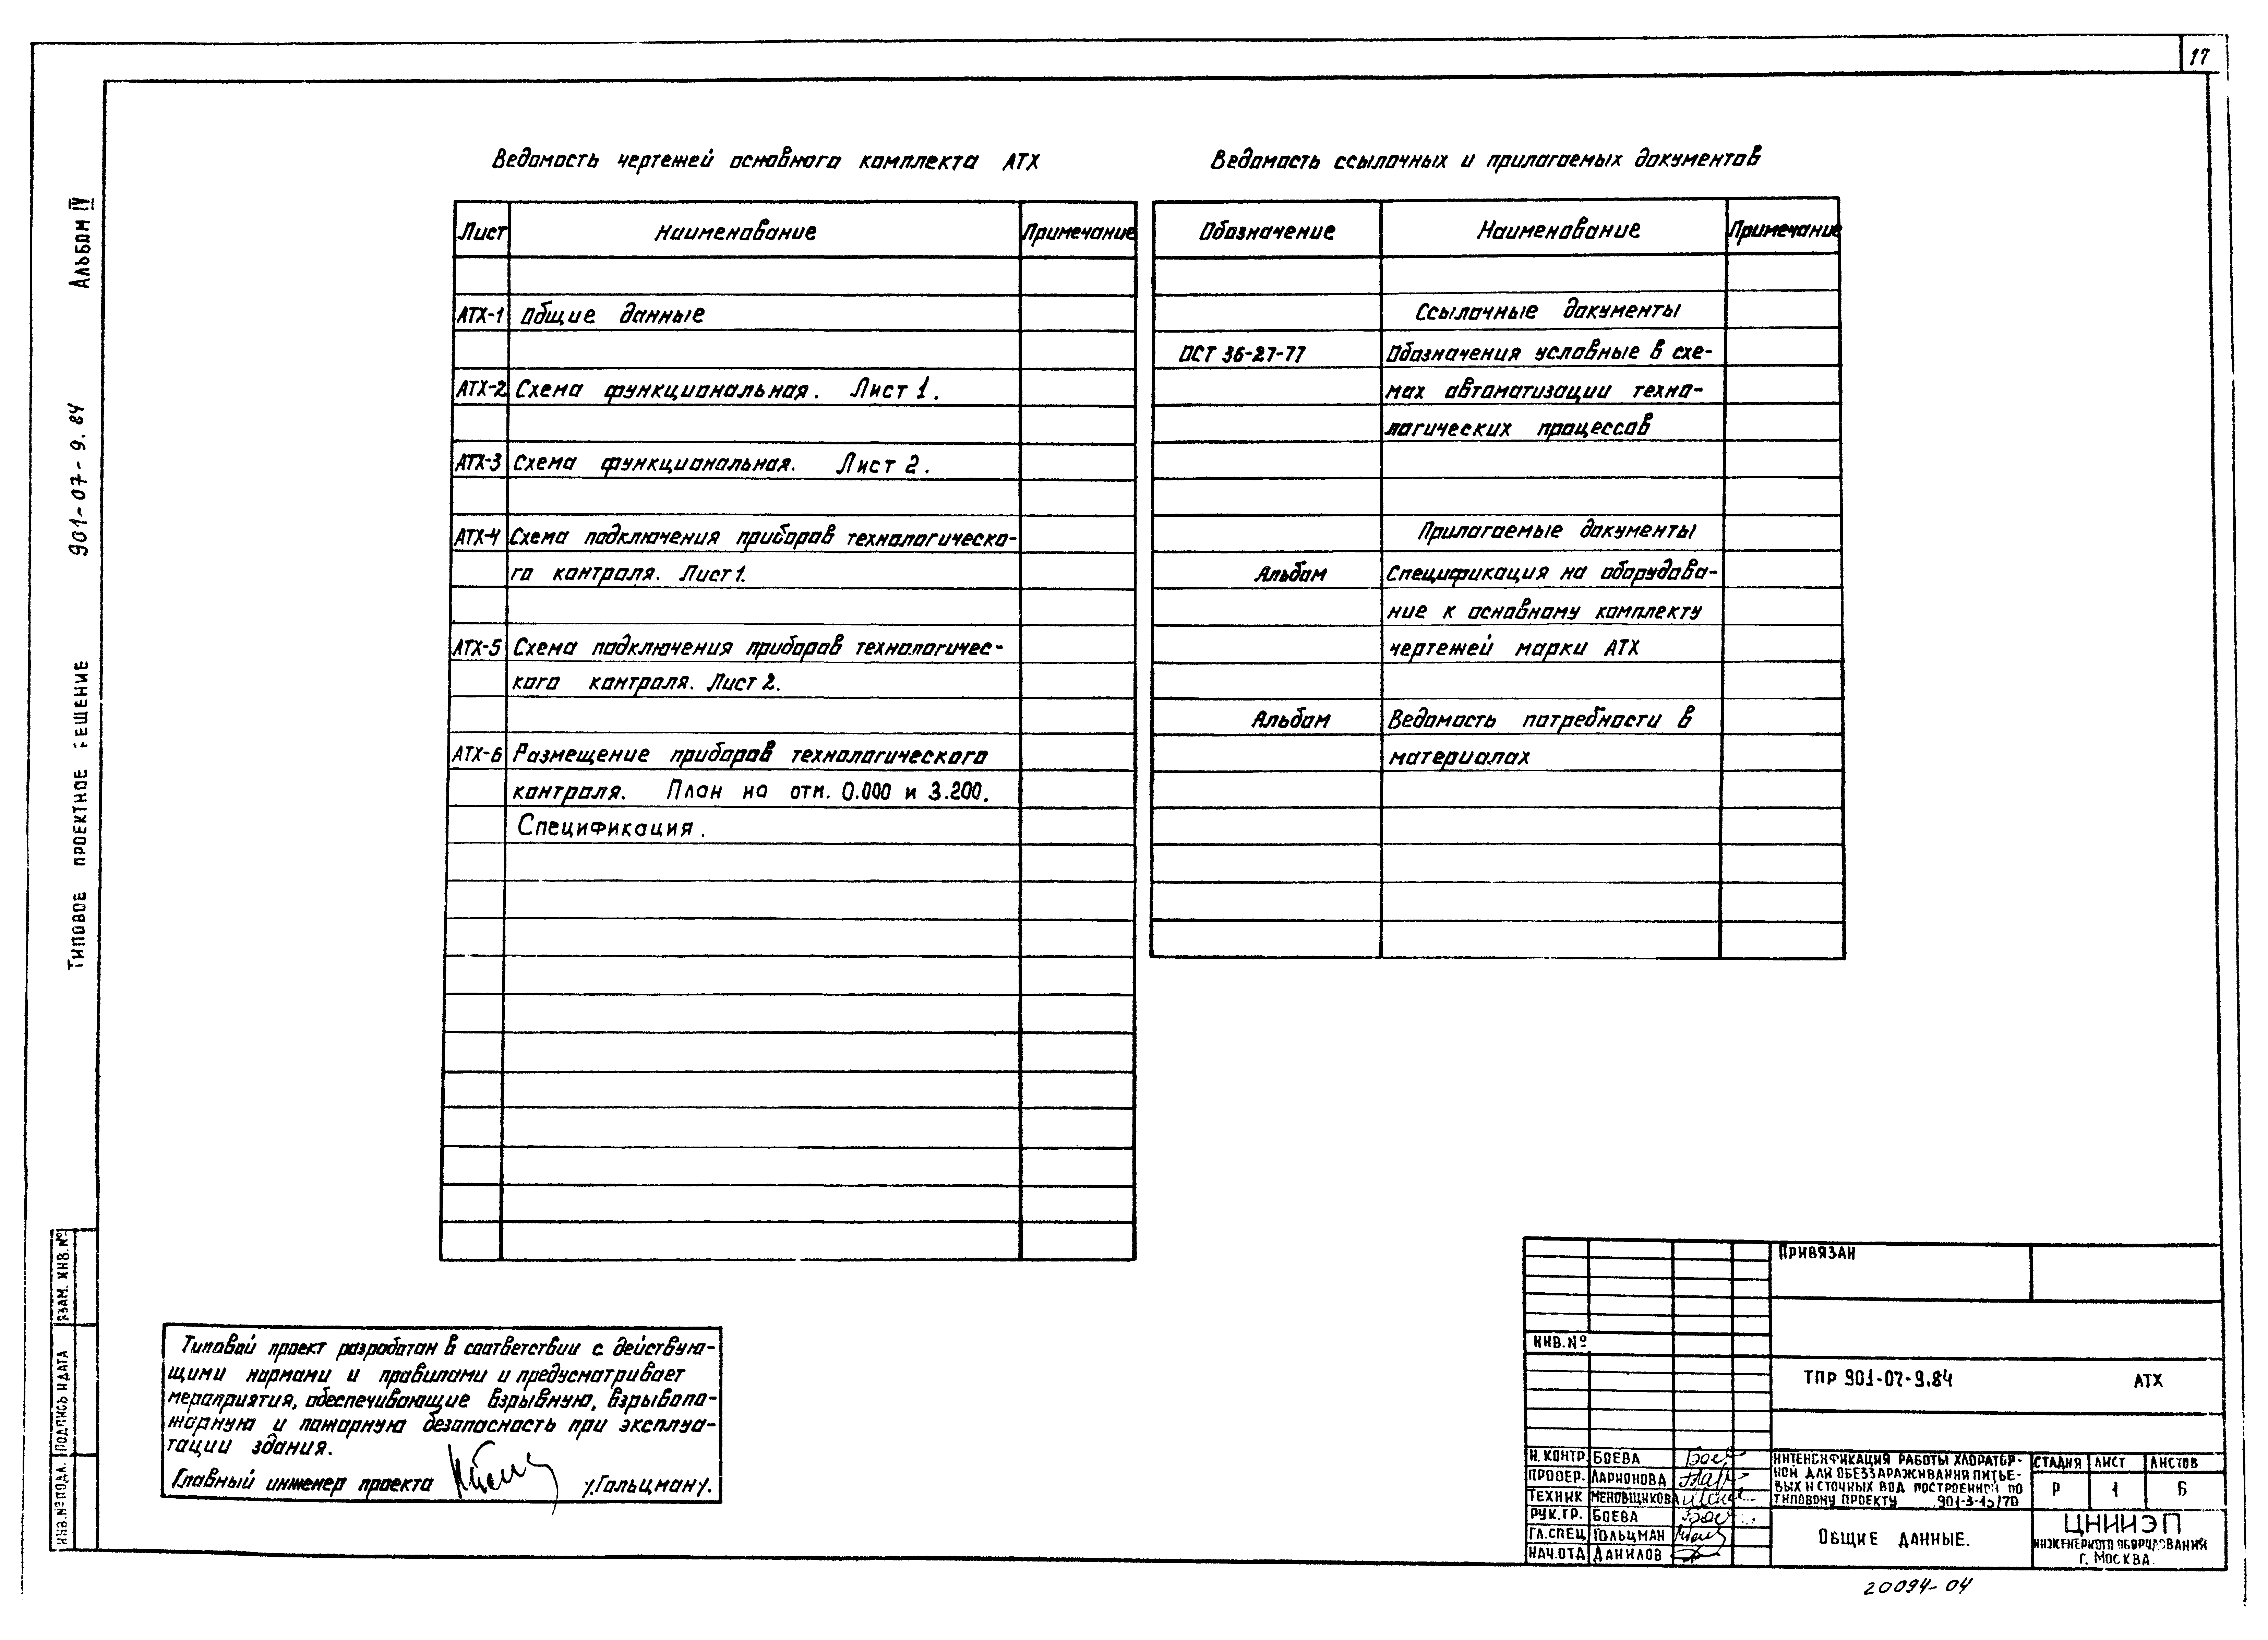 17
Альбом IV
901-07-9.84
Типовое проектное решение
Ведомость чертежей основного комплекта АТХ
Лист Наименование Примечание
АТХ-1 Общие данные
АТХ-2 Схема функциональная. Лист 1.
АТХ-3 Схема функциональная. Лист 2.
АТХ-4 Схема подключения приборов технологическо-
го контроля. Лист 1.
АТХ-5 Схема подключения приборов технологичес-
кого контроля. Лист 2.
АТХ-6 Размещение приборов технологического
контроля. План на отм. 0.000 и 3.200.
Спецификация.
Ведомость ссылочных и прилагаемых документов
Обозначение Наименование Примечание
Ссылочные документы
ОСТ 36-27-77 Обозначения условные в схе-
мах автоматизации техно-
логических процессов
Прилагаемые документы
Альбом Спецификация на оборудова-
ние к основному комплекту
чертежей марки АТХ
Альбом Ведомость потребности в
материалах
Типовой проект разработан в соответствии с действую-
щими нормами и правилами и предусматривает
мероприятия, обеспечивающие взрывную, взрывопо-
жарную и пожарную безопасность при эксплуа-
тации здания.
Главный инженер проекта /Гольцман/.
Взам. инв. №
Подпись и дата
Инв. № подл.
Привязан
Инв. №
ТПР 901-07-9.84 АТХ
Н. контр. Боева
Провер. Ларионова
Техник Меновщикова
Рук. гр. Боева
Гл. спец. Гольцман
Нач. отд. Данилов
Интенсификация работы хлоратор-
ной для обеззараживания питье-
вых и сточных вод построенной по
типовому проекту 901-3-15/70
Стадия Лист Листов
Р 1 6
Общие данные.
ЦНИИЭП
инженерного оборудования
г. Москва.
20094-04